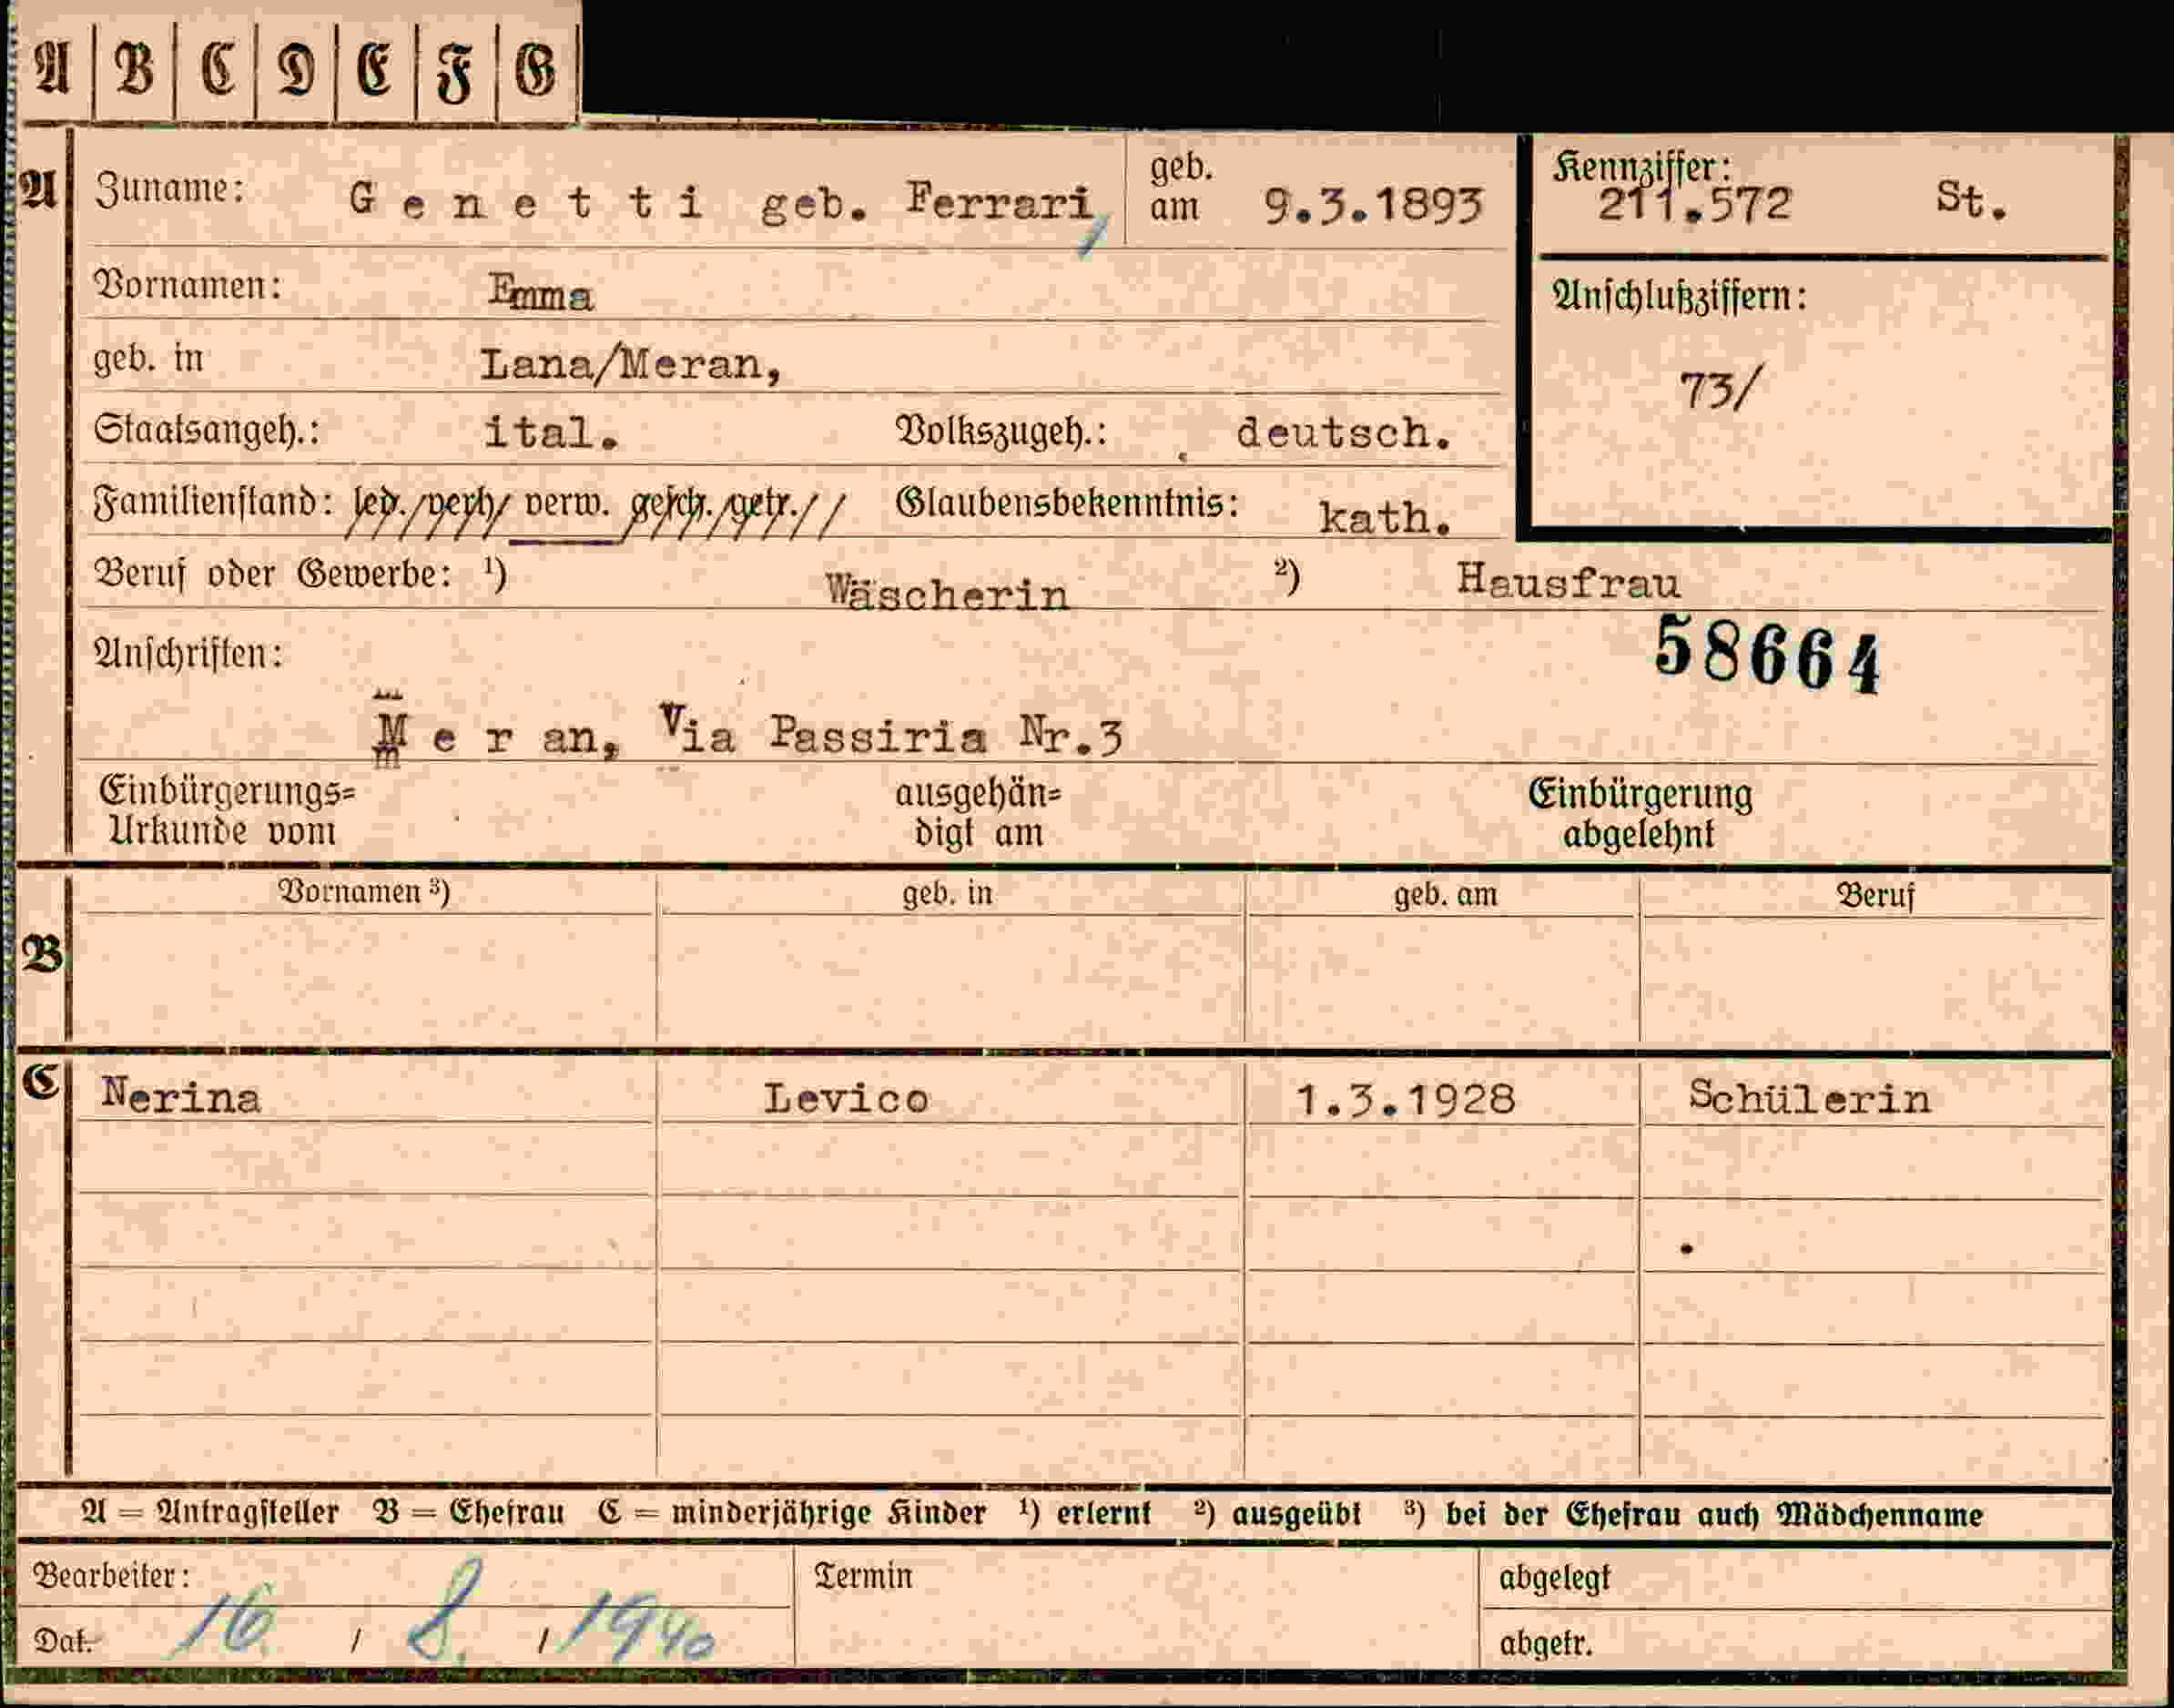 A B C D E F G
A Zuname: G e n e t t i geb. Ferrari, geb. am 9.3.1893 Kennziffer: 211.572 St.
Vornamen: Emma Anschlußziffern:
geb. in Lana/Meran, 73/
Staatsangeh.: ital. Volkszugeh.: deutsch.
Familienstand: led./verh/ verw. gesch./getr.// Glaubensbekenntnis: kath.
Beruf oder Gewerbe: ¹) Wäscherin ²) Hausfrau
Anschriften: 58664
M e r an, Via Passiria Nr.3
Einbürgerungs= ausgehän= Einbürgerung
Urkunde vom digt am abgelehnt
Vornamen ³) geb. in geb. am Beruf
B
C Nerina Levico 1.3.1928 Schülerin
A = Antragsteller B = Ehefrau C = minderjährige Kinder ¹) erlernt ²) ausgeübt ³) bei der Ehefrau auch Mädchenname
Bearbeiter: Termin abgelegt
Dat. 16 / 8. / 1940 abgetr.